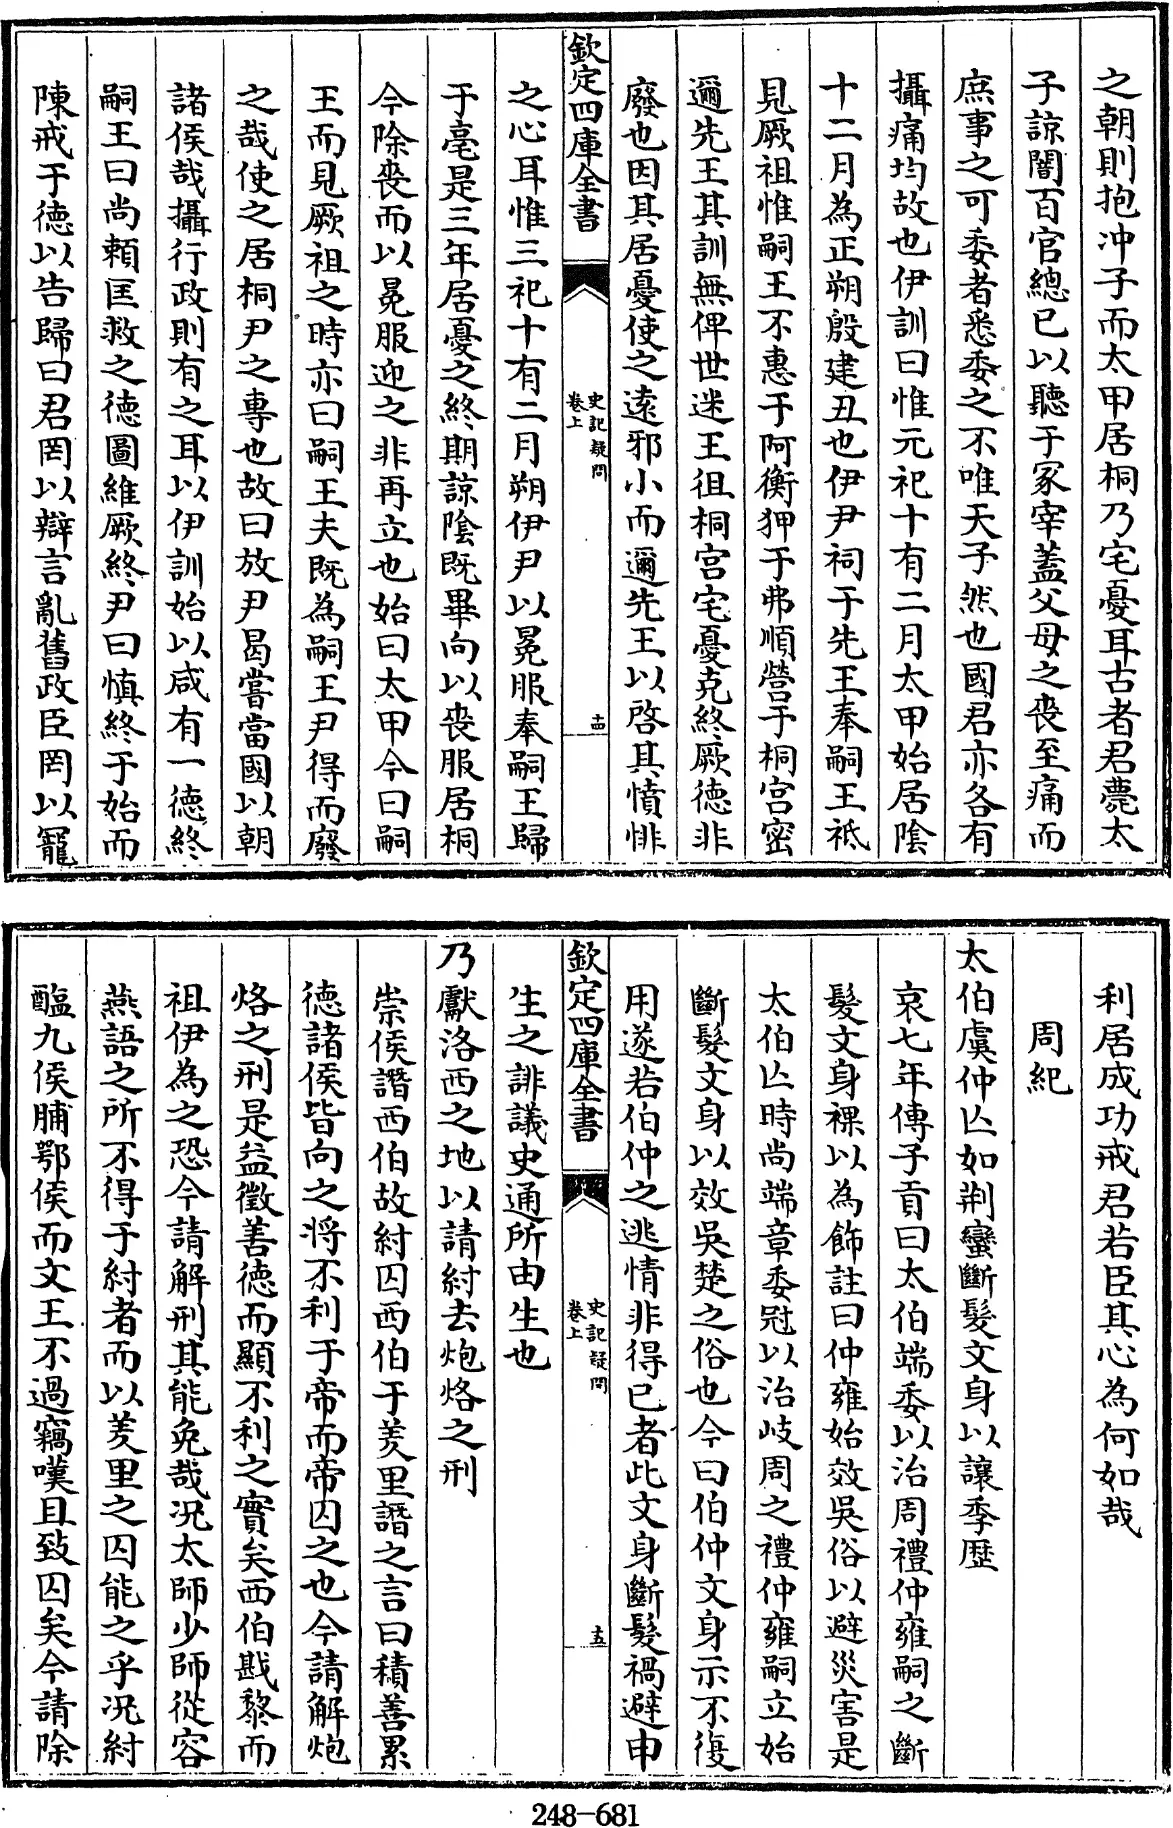 之朝則抱冲子而太甲居桐乃宅憂耳古者君薨太
子諒闇百官總已以聽于冢宰蓋父母之喪至痛而
庶事之可委者悉委之不唯天子然也國君亦各有
攝痛均故也伊訓曰惟元祀十有二月太甲始居陰
十二月為正朔殷建丑也伊尹祠于先王奉嗣王祗
見厥祖惟嗣王不惠于阿衡狎于弗順營于桐宮密
邇先王其訓無俾世迷王徂桐宮宅憂克終厥德非
廢也因其居憂使之逺邪小而邇先王以啓其憤悱
欽定四庫全書
史記疑問
卷上
十四
之心耳惟三祀十有二月朔伊尹以冕服奉嗣王歸
于亳是三年居憂之終期諒陰既畢向以喪服居桐
今除喪而以冕服迎之非再立也始曰太甲今曰嗣
王而見厥祖之時亦曰嗣王夫既為嗣王尹得而廢
之哉使之居桐尹之專也故曰放尹曷嘗當國以朝
諸侯哉攝行政則有之耳以伊訓始以咸有一德終
嗣王曰尚賴匡救之德圖維厥終尹曰慎終于始而
陳戒于德以告歸曰君罔以辯言亂舊政臣罔以寵
利居成功戒君若臣其心為何如哉
周紀
太伯虞仲亾如荆蠻斷髮文身以讓季歷
哀七年傳子貢曰太伯端委以治周禮仲雍嗣之斷
髮文身裸以為飾註曰仲雍始效吳俗以避災害是
太伯亾時尚端章委冠以治岐周之禮仲雍嗣立始
斷髮文身以效吳楚之俗也今曰伯仲文身示不復
用遂若伯仲之逃情非得已者此文身斷髮禍避申
欽定四庫全書
史記疑問
卷上
十五
生之誹議史通所由生也
乃獻洛西之地以請紂去炮烙之刑
崇侯譖西伯故紂囚西伯于羑里譖之言曰積善累
德諸侯皆向之將不利于帝而帝囚之也今請解炮
烙之刑是益徵善德而顯不利之實矣西伯戡黎而
祖伊為之恐今請解刑其能免哉况太師少師從容
燕語之所不得于紂者而以羑里之囚能之乎况紂
醢九侯脯鄂侯而文王不過竊嘆且致囚矣今請除
248-681